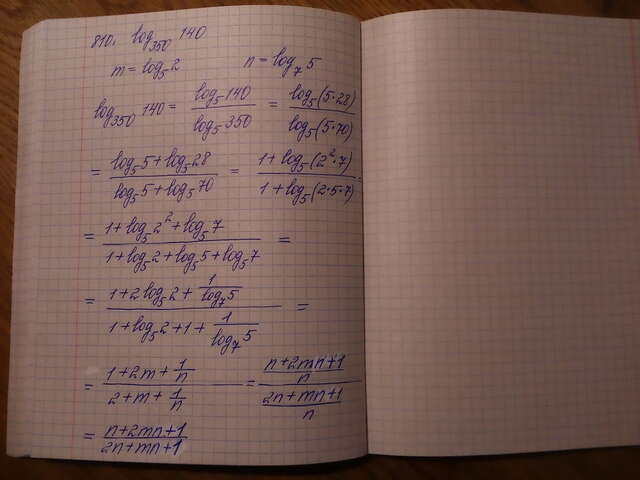 810. log₃₅₀ 140
m = log₅ 2 n = log₇ 5
log₃₅₀ 140 = log₅ 140 / log₅ 350 = log₅(5·28) / log₅(5·70)
= (log₅ 5 + log₅ 28) / (log₅ 5 + log₅ 70) = (1 + log₅(2²·7)) / (1 + log₅(2·5·7))
= (1 + log₅ 2² + log₅ 7) / (1 + log₅ 2 + log₅ 5 + log₅ 7) =
= (1 + 2 log₅ 2 + 1 / log₇ 5) / (1 + log₅ 2 + 1 + 1 / log₇ 5) =
= (1 + 2m + 1/n) / (2 + m + 1/n) = ((n + 2mn + 1) / n) / ((2n + mn + 1) / n)
= (n + 2mn + 1) / (2n + mn + 1)